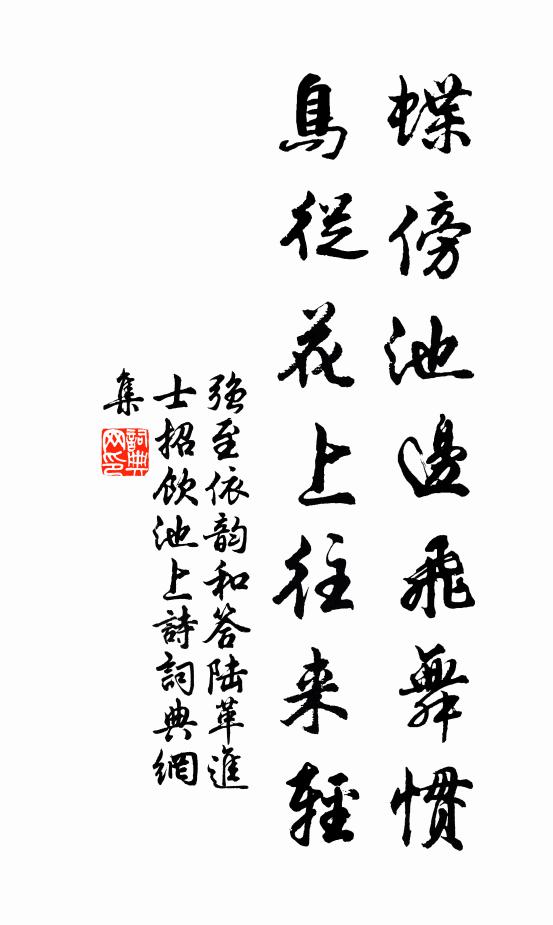 蝶傍池邊飛舞慣
鳥從花上往来輕
強至依韵和答陆革進
士招飲池上詩詞典網
集
詞典
网印